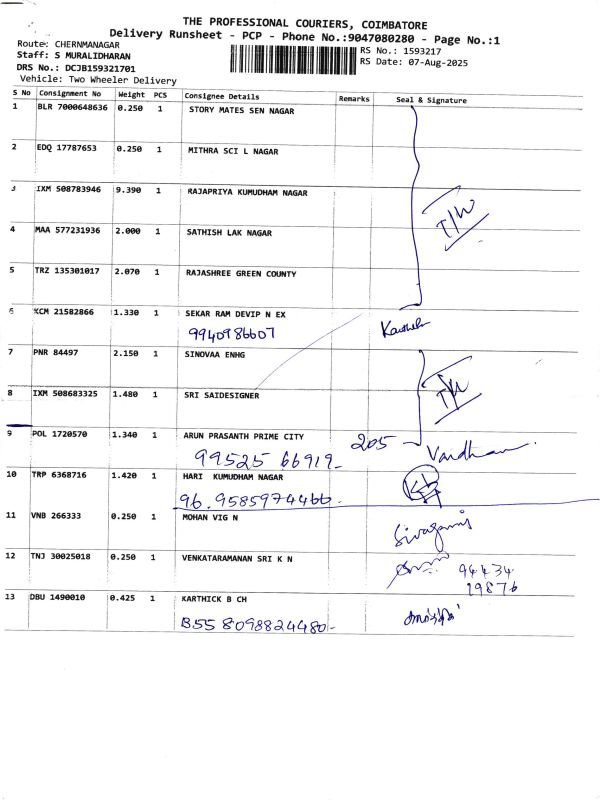 THE PROFESSIONAL COURIERS, COIMBATORE
Delivery Runsheet - PCP - Phone No.:9047080280 - Page No.:1
Route: CHERNMANAGAR
Staff: S MURALIDHARAN
DRS No.: DCJB159321701
Vehicle: Two Wheeler Delivery
RS No.: 1593217
RS Date: 07-Aug-2025
S No Consignment No Weight PCS Consignee Details Remarks Seal & Signature
1 BLR 7000648636 0.250 1 STORY MATES SEN NAGAR
2 EDQ 17787653 0.250 1 MITHRA SCI L NAGAR
3 IXM 508783946 9.390 1 RAJAPRIYA KUMUDHAM NAGAR
T/W
4 MAA 577231936 2.000 1 SATHISH LAK NAGAR
5 TRZ 135301017 2.070 1 RAJASHREE GREEN COUNTY
6 KCM 21582866 1.330 1 SEKAR RAM DEVIP N EX
9940986607
7 PNR 84497 2.150 1 SINOVAA ENHG
8 IXM 508683325 1.480 1 SRI SAIDESIGNER
T/W
9 POL 1720570 1.340 1 ARUN PRASANTH PRIME CITY 205
99525 66919 Vardhan
10 TRP 6368716 1.420 1 HARI KUMUDHAM NAGAR
96. 9585974466
11 VNB 266333 0.250 1 MOHAN VIG N
12 TNJ 30025018 0.250 1 VENKATARAMANAN SRI K N
94434
19876
13 DBU 1490010 0.425 1 KARTHICK B CH
B55 8098824480